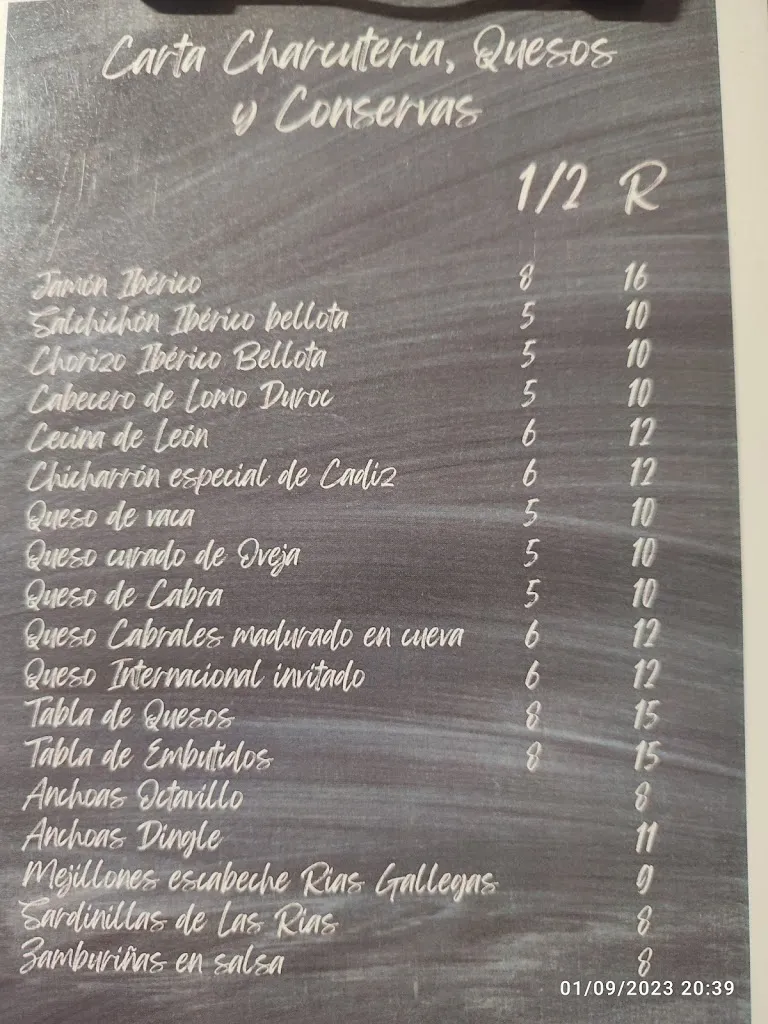 Carta Charcuteria, Quesos
y Conservas
1/2 R
Jamón Ibérico 8 16
Salchichón Ibérico bellota 5 10
Chorizo Ibérico Bellota 5 10
Cabecero de Lomo Duroc 5 10
Cecina de León 6 12
Chicharrón especial de Cadiz 6 12
Queso de vaca 5 10
Queso curado de Oveja 5 10
Queso de Cabra 5 10
Queso Cabrales madurado en cueva 6 12
Queso Internacional invitado 6 12
Tabla de Quesos 8 15
Tabla de Embutidos 8 15
Anchoas Octavillo 8
Anchoas Dingle 11
Mejillones escabeche Rias Gallegas 9
Sardinillas de Las Rias 8
Zamburiñas en salsa 8
01/09/2023 20:39